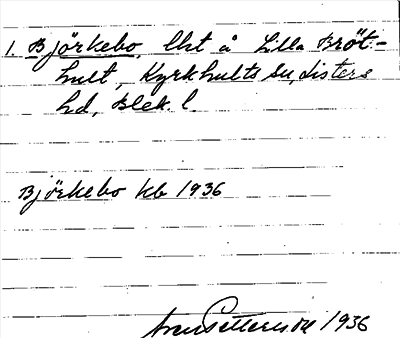 1. Björkebo, lht å Lilla Bröt-
hult, Kyrkhults sn, Listers
hd, Blek. l.
Björkebo kb 1936
Pettersson 1936